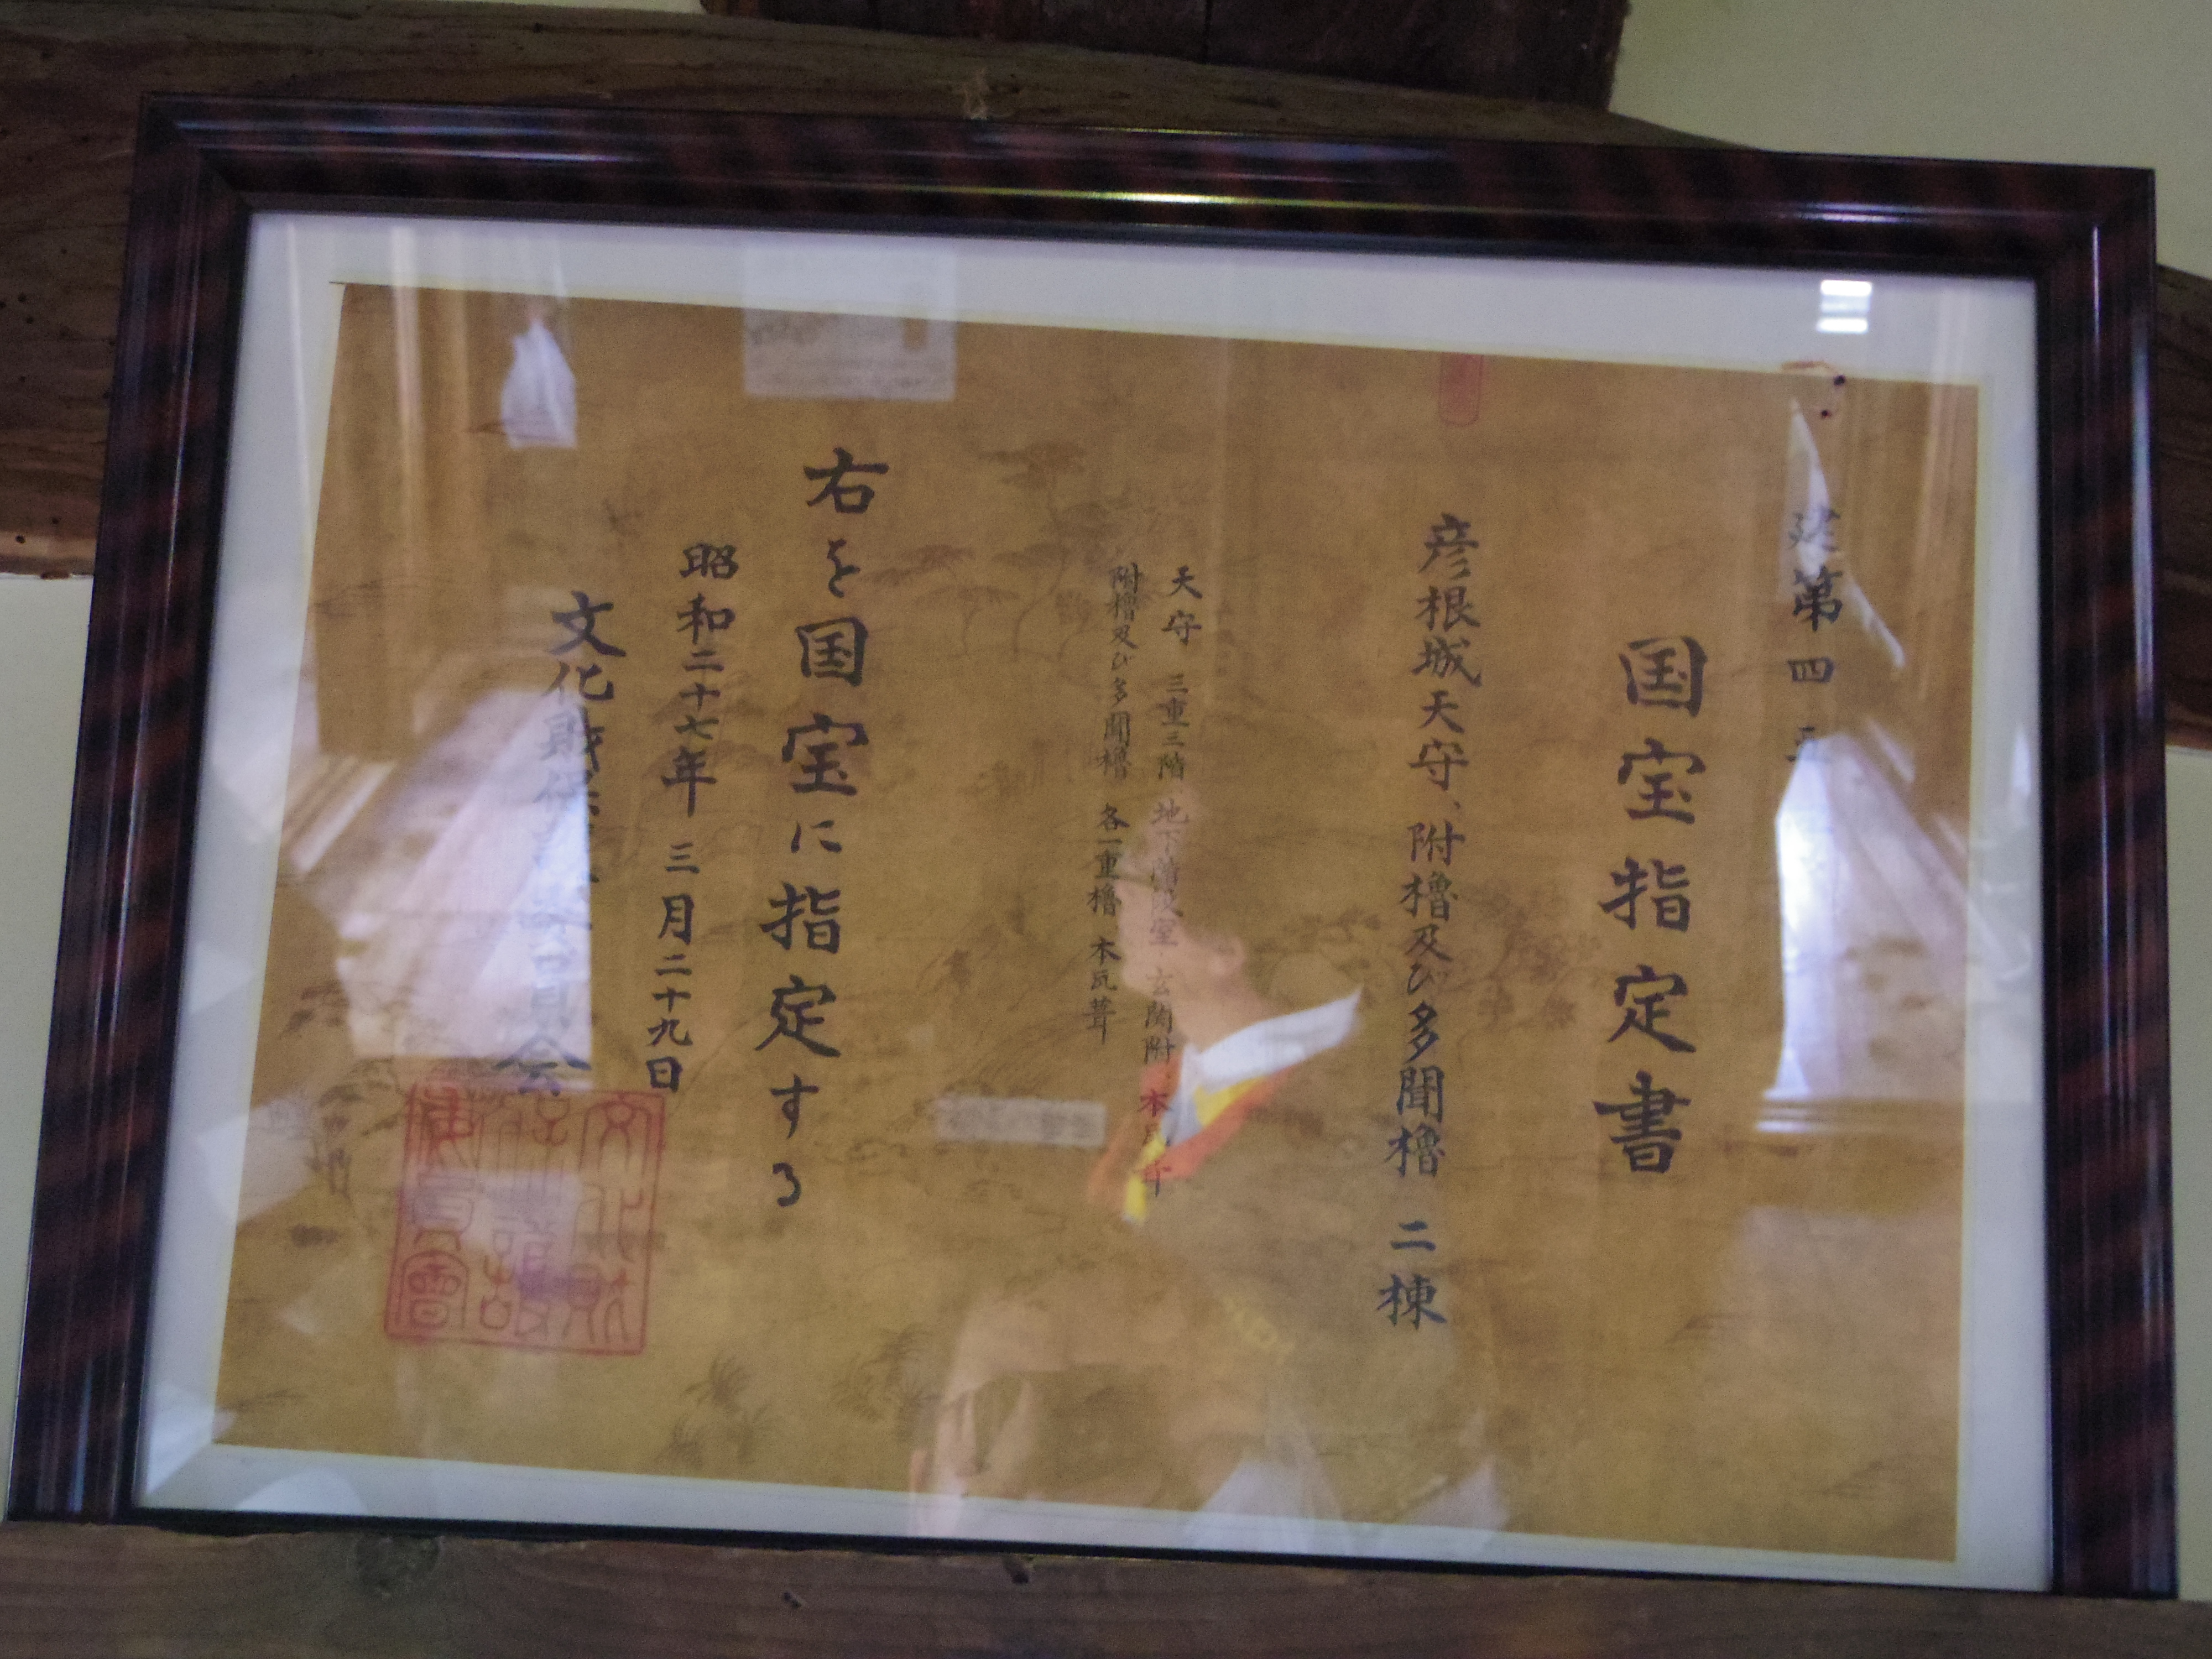 建第四五
国宝指定書
彦根城天守、附櫓及び多聞櫓 二棟
天守 三重三階、地下階段室、玄関附、本瓦
附櫓及び多聞櫓 各一重櫓 本瓦葺
右を国宝に指定する
昭和二十七年 三月二十九日
文化財保 委員会
文化財
保存護
委員會